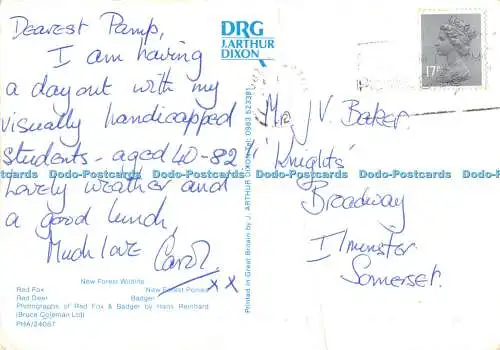 Dearest Pamp,
I am having
a day out with my
visually handicapped
students - aged 40-82!
Lovely weather and
a good lunch,
Much love Carol.
x x
New Forest Wildlife
Red Fox New Forest Ponies
Red Deer Badger
Photographs of Red Fox & Badger by Hans Reinhard
(Bruce Coleman Ltd)
PHA/24067
DRG
J. ARTHUR
DIXON
Printed in Great Britain by J. ARTHUR DIXON Tel: 0983 523381
17P
Mr. J V. Baker.
'Knights'
Broadway
Ilminster
Somerset.
Dodo-Postcards Dodo-Postcards Dodo-Postcards Dodo-Postcards Dodo-Postcards